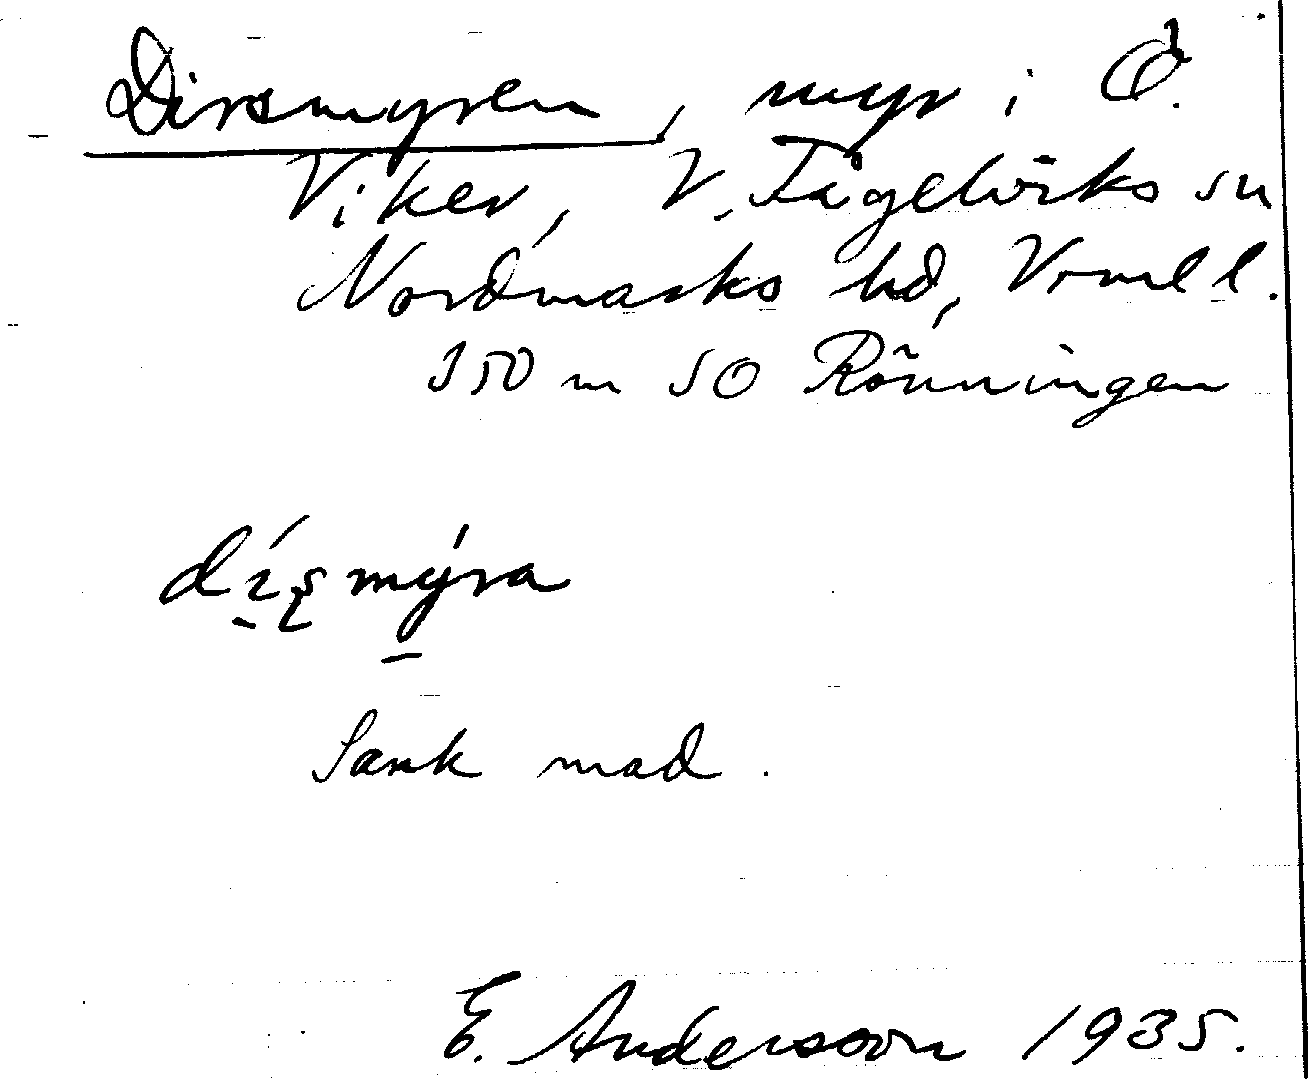 Dirsmyren, myr i Ö.
Viker, V. Fågelviks sn
Nordmarks hd, Vrml l.
350 m SO Rönningen
dísmýra
Sank mad.
E. Andersson 1935.